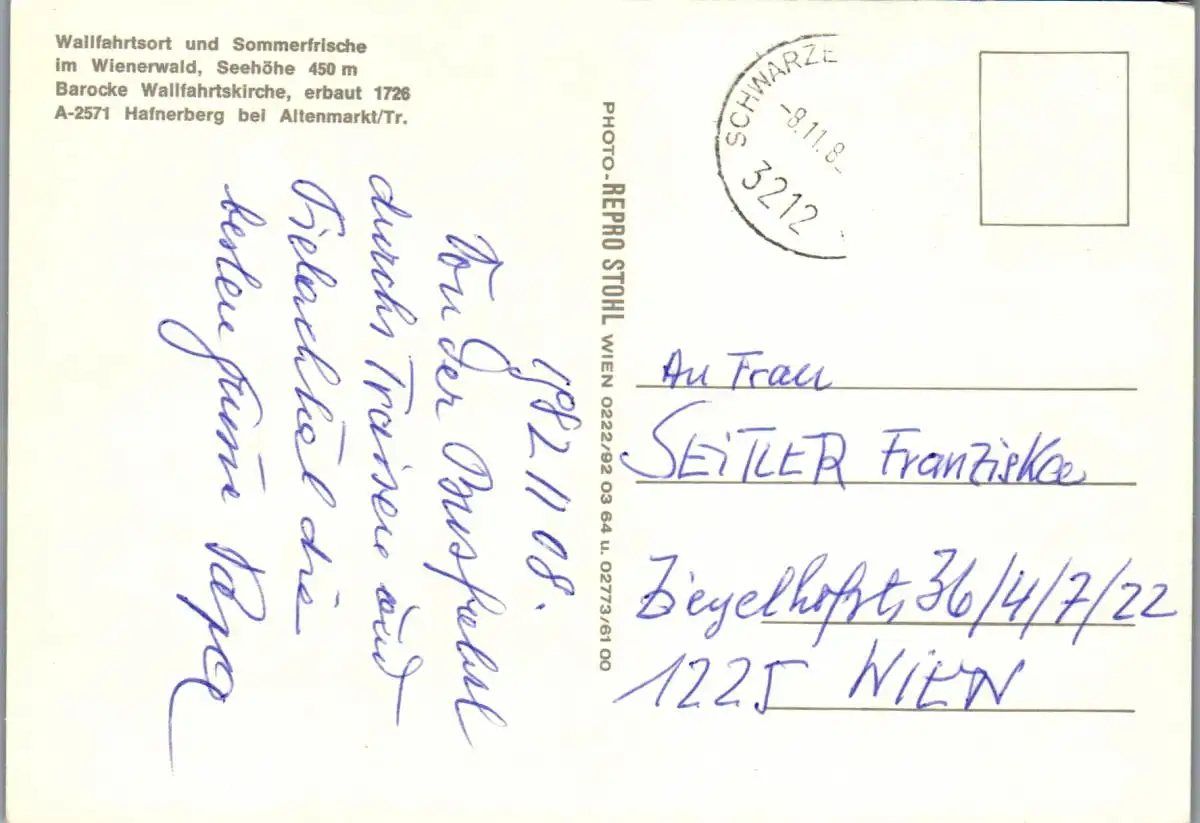 Wallfahrtsort und Sommerfrische
im Wienerwald, Seehöhe 450 m
Barocke Wallfahrtskirche, erbaut 1726
A-2571 Hafnerberg bei Altenmarkt/Tr.
1982 11 08.
Von der Busfahrt
durchs Traisen und
Pielachtal die
besten Grüße Papa
PHOTO-REPRO STOHL WIEN 0222/92 03 64 u. 02773/61 00
SCHWARZE
-8.11.8
3212
An Frau
SEITLER Franziska
Ziegelhofst, 36/4/7/22
1225 WIEN